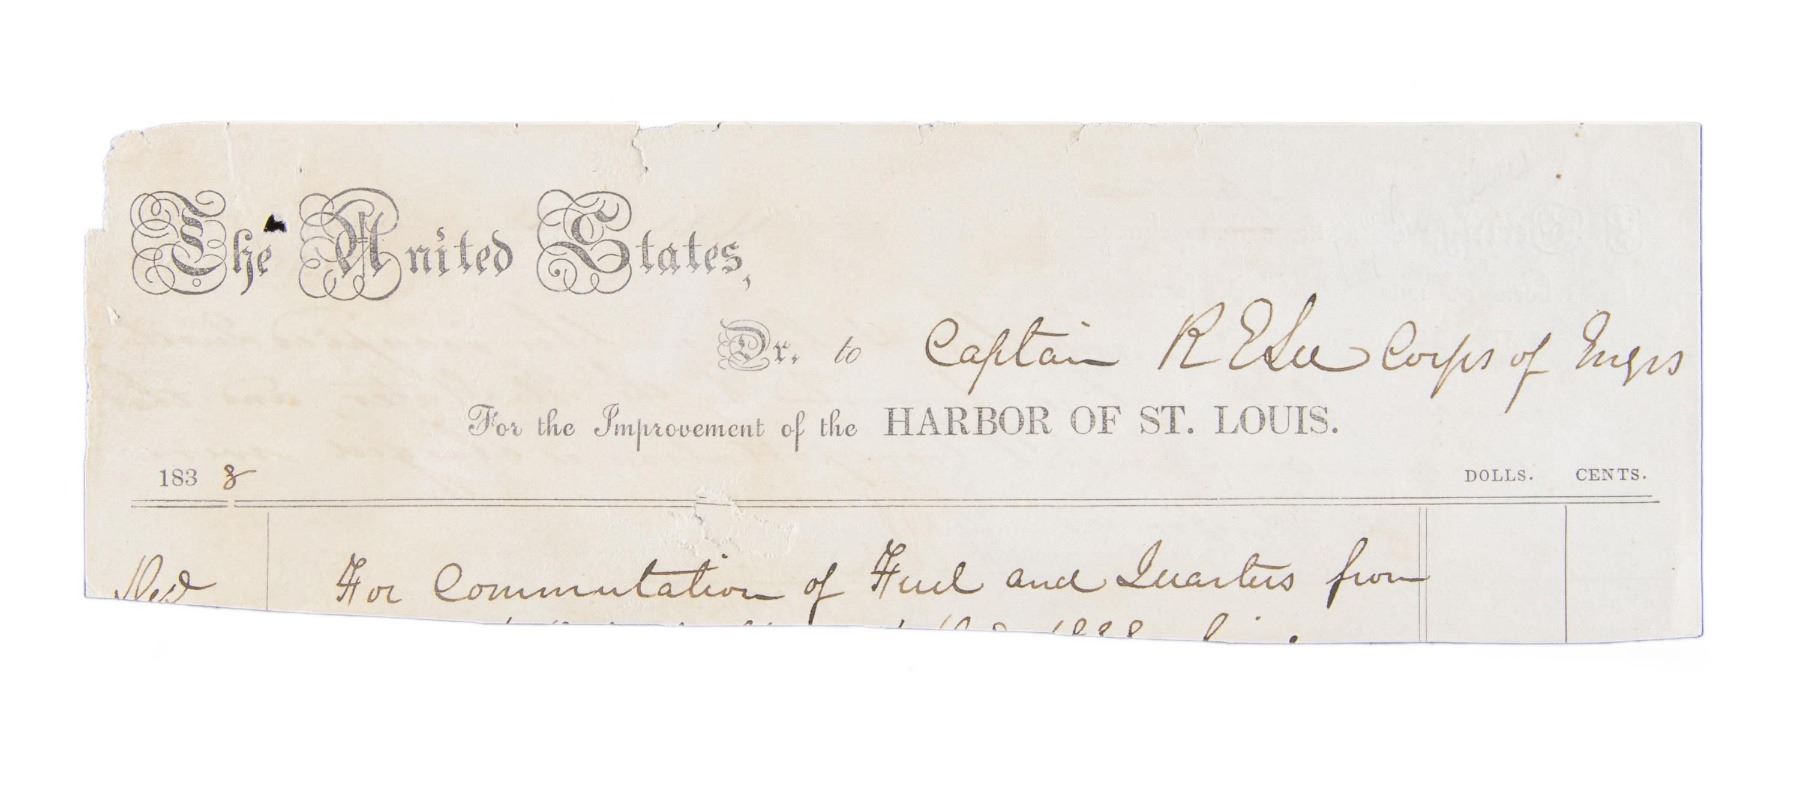 The United States,
Dr. to Captain R E Lee Corps of Engrs
For the Improvement of the HARBOR OF ST. LOUIS.
1838 DOLLS. CENTS.
For Commutation of Fuel and Quarters from
1838